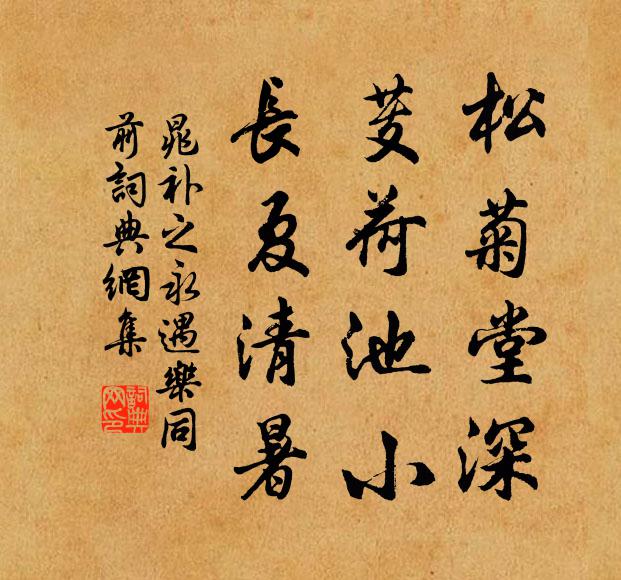 松菊堂深
芰荷池小
長夏清暑
晁补之永遇樂同
前詞典網集
詞典網印